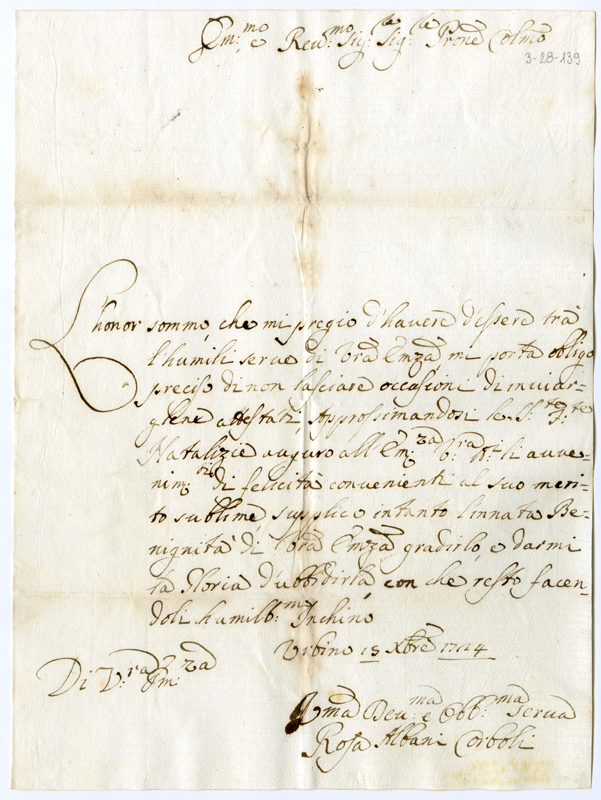 Em:mo e Reu:mo Sig:re Sig:re Prone Colmo
3-28-139
L'honor sommo, che mi pregio d'havere d'essere trà
l'humili serue di Vra Emza mi porta obligo
preciso di non lasciare occasioni di inviar-
gliene attestati. Approssimandosi le S.te F.te
Natalizie auguro all'Em:za V:ra li auue-
nim:ti di felicità convenienti al suo meri-
to sublime supplico intanto l'innata Be-
nignità di Vra Emza gradirlo, e darmi
la Gloria d'ubbidirla, con che resto facen-
doli humilb:mo Inchino
Urbino 15 Xbre 1714
Di V:ra Em:za
Uma Deu:ma e Obb:ma serua
Rosa Albani Corboli